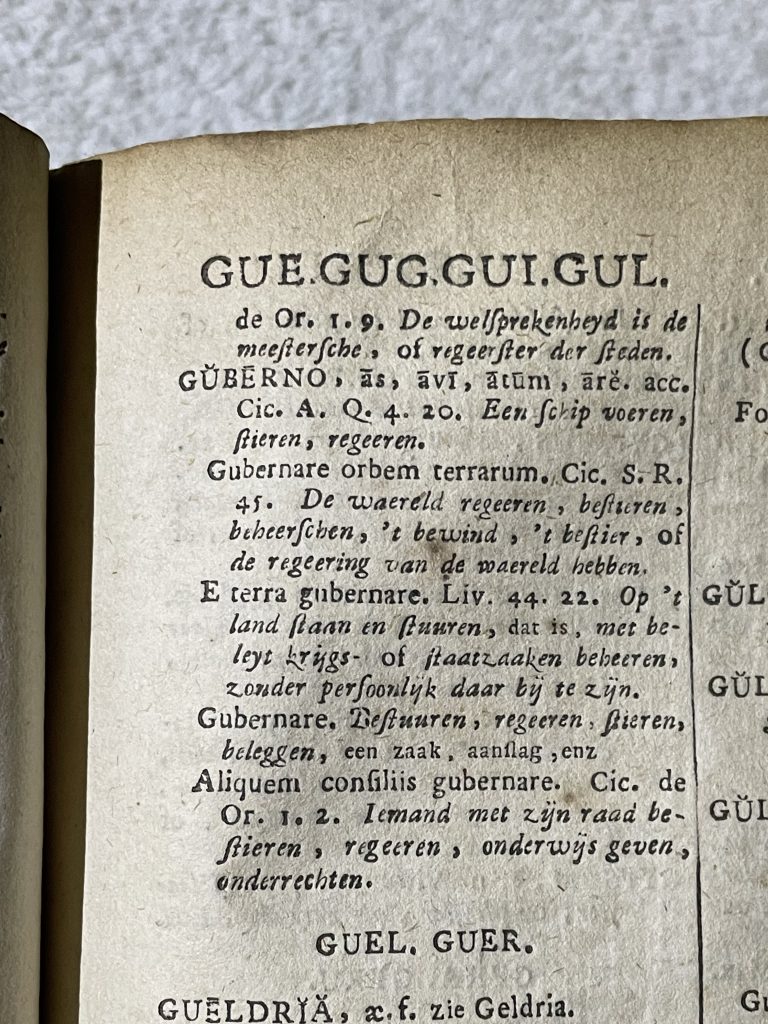 GUE.GUG.GUI.GUL.
de Or. 1. 9. De welſprekenheyd is de
meeſterſche, of regeerſter der ſteden.
GŬBĒRNO, ās, āvī, ātūm, ārĕ. acc.
Cic. A. Q. 4. 20. Een ſchip voeren,
ſtieren, regeeren.
Gubernare orbem terrarum. Cic. S. R.
45. De waereld regeeren, beſtieren,
beheerſchen, 't bewind, 't beſtier, of
de regeering van de waereld hebben.
E terra gubernare. Liv. 44. 22. Op 't
land ſtaan en ſtuuren, dat is, met be-
leyt krijgs- of ſtaatzaaken beheeren,
zonder perſoonlijk daar bij te zijn.
Gubernare. Beſtuuren, regeeren, ſtieren,
beleggen, een zaak, aanſlag, enz
Aliquem conſiliis gubernare. Cic. de
Or. 1. 2. Iemand met zijn raad be-
ſtieren, regeeren, onderwijs geven,
onderrechten.
GUEL. GUER.
GUĒLDRĬĂ, æ. f. zie Geldria.
(
Fo
GŬL
GŬL
GŬL
Gu